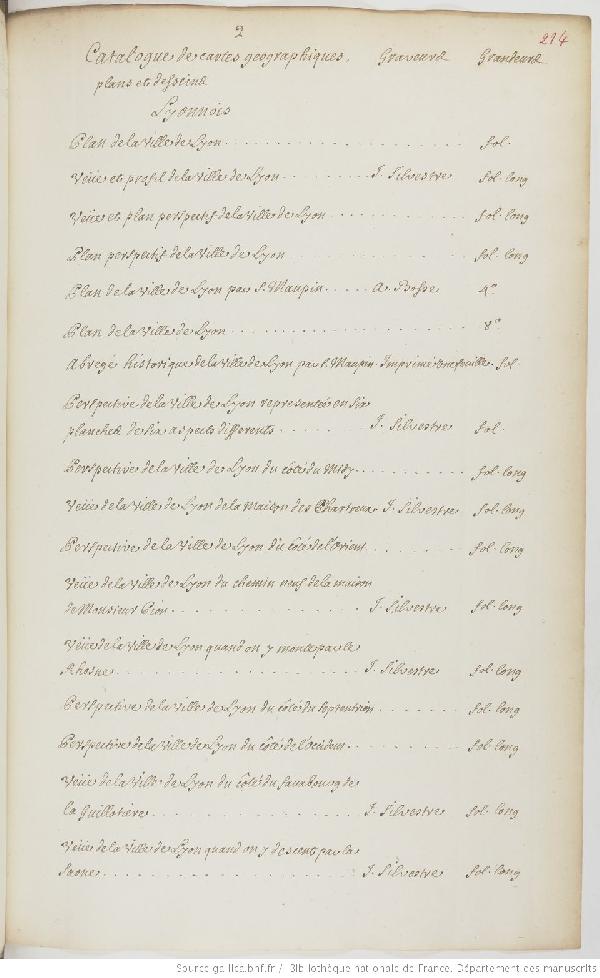 2
224
Catalogue de cartes geographiques, Graveurs Grandeurs
plans et desseins
Lyonnois
Plan de la Ville de Lyon . . . fol.
Veüe et profil de la Ville de Lyon . . . I. Silvestre fol. long
Veüe et plan perspectif de la Ville de Lyon . . . fol. long
Plan perspectif de la Ville de Lyon . . . fol. long
Plan de la Ville de Lyon par S. Maupin . . . A. Bosse 4º
Plan de la Ville de Lyon . . . 8º
Abregé historique de la Ville de Lyon par S. Maupin. Imprimé feuille. fol.
Perspective de la Ville de Lyon representée en six
planches de six aspects differents . . . I. Silvestre fol.
Perspective de la Ville de Lyon du côté du Midy . . . fol. long
Veüe de la Ville de Lyon de la Maison des Chartreux. I. Silvestre fol. long
Perspective de la Ville de Lyon du côté de l'Orient . . . fol. long
Veüe de la Ville de Lyon du chemin neuf de la maison
de Monsieur . . . I. Silvestre fol. long
Veüe de la Ville de Lyon quand on y monte par le
Rhosne . . . I. Silvestre fol. long
Perspective de la Ville de Lyon du côté du septentrion . . . fol. long
Perspective de la Ville de Lyon du côté de l'occident . . . fol. long
Veüe de la Ville de Lyon du côté du fauxbourg de
la Guillotière . . . I. Silvestre fol. long
Veüe de la Ville de Lyon quand on y descent par la
Saone . . . I. Silvestre fol. long
Source gallica.bnf.fr / Bibliothèque nationale de France. Département des manuscrits